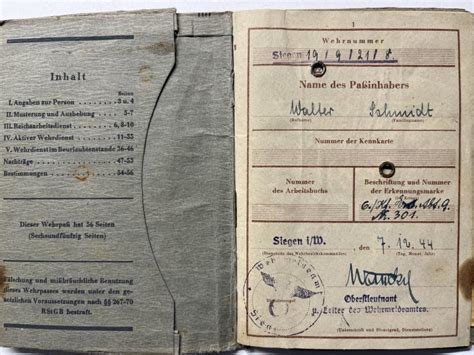 Inhalt
Seiten
I. Angaben zur Person 3 u. 4
II. Musterung und Aushebung 5-7
III. Reichsarbeitsdienst 6, 8-10
IV. Aktiver Wehrdienst 11-35
V. Wehrdienst im Beurlaubtenstande 36-46
Nachträge 47-53
Bestimmungen 54-56
Dieser Wehrpaß hat 56 Seiten
(Sechsundfünfzig Seiten)
Fälschung und mißbräuchliche Benutzung
dieses Wehrpasses wird unter den ge-
setzlichen Voraussetzungen nach §§ 267-70
RStGB bestraft.
1
Wehrnummer
Siegen 19/9/21/8
Name des Paßinhabers
Walter Schmidt
Nummer der Kennkarte
Nummer
des Arbeitsbuchs
Beschriftung und Nummer
der Erkennungsmarke
N. 301.
Siegen i/W. , den 7.12.44
Oberstleutnant
u. Leiter des Wehrmeldeamtes.